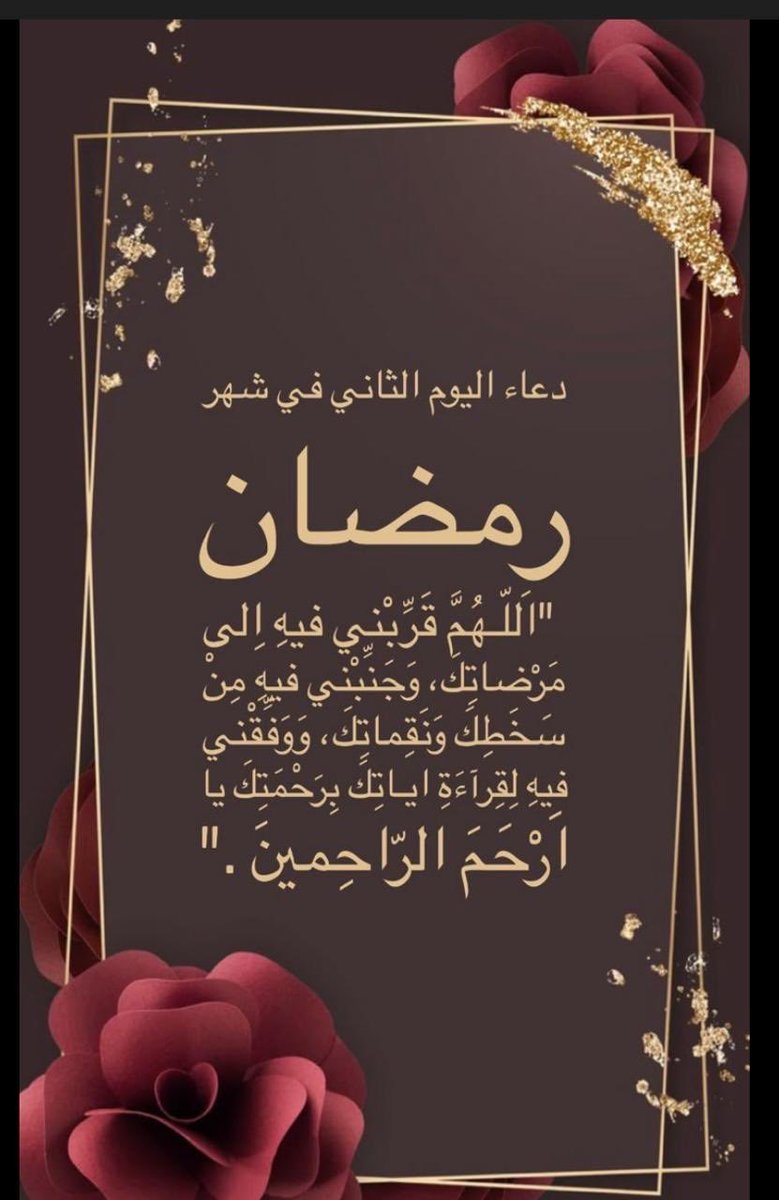 دعاء اليوم الثاني في شهر
رمضان
"اَللّـهُمَّ قَرِّبْني فيهِ اِلى
مَرْضاتِكَ، وَجَنِّبْني فيهِ مِنْ
سَخَطِكَ وَنَقِماتِكَ، وَوَفِّقْني
فيهِ لِقِرآءَةِ اياتِكَ بِرَحْمَتِكَ يا
اَرْحَمَ الرّاحِمينَ ."